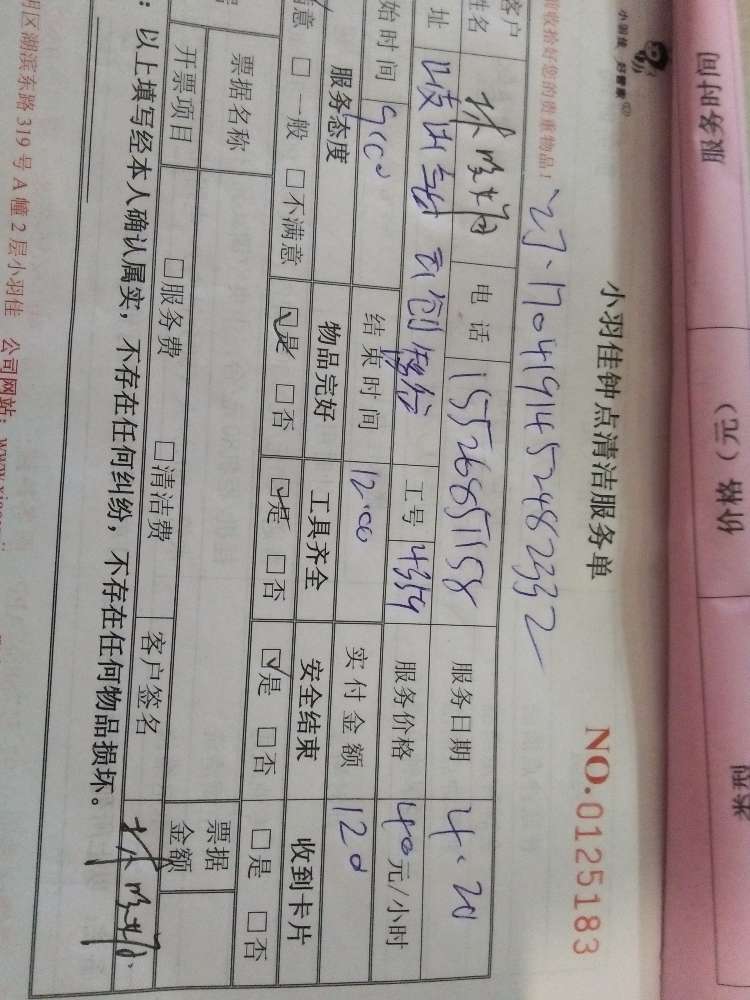 服务时间
价格（元）
类型
小羽佳 好管家®
小羽佳钟点清洁服务单
NO.0125183
收拾好您的贵重物品！
1704191452482332
客户姓名 电话 15526851158 服务日期 4.20
址 工号 4359 服务价格 40元/小时
始时间 9:00 结束时间 12:00 实付金额 120
服务态度 物品完好 工具齐全 安全结束 收到卡片
满意 □一般 □不满意 ☑是 □否 ☑是 □否 ☑是 □否 □是 □否
票据名称 票据金额
开票项目 □服务费 □清洁费 客户签名
：以上填写经本人确认属实，不存在任何纠纷，不存在任何物品损坏。
明区湖滨东路319号A幢2层小羽佳 公司网站：www.xiao